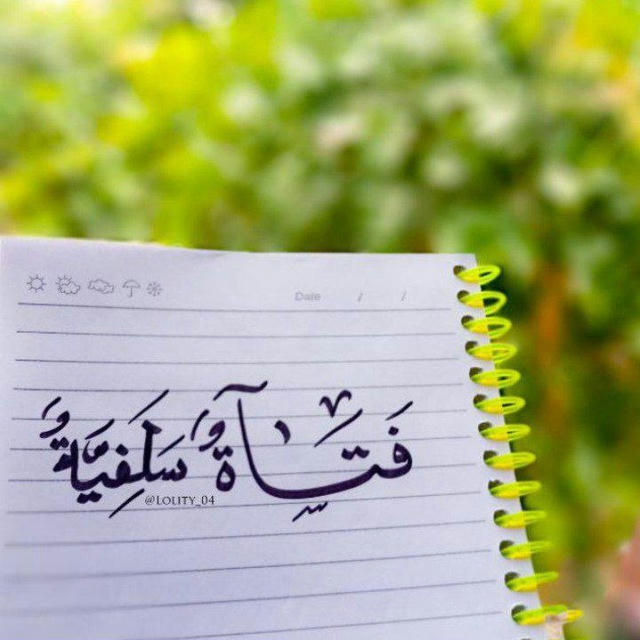 Date / /
فَتَاةٌ سَلَفِيَّةٌ
@LOLITY_04